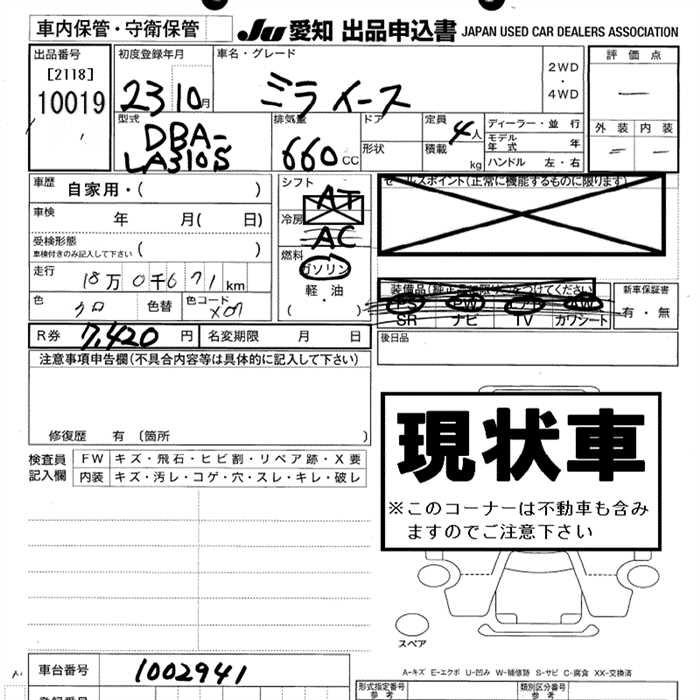 車内保管・守衛保管
JU 愛知 出品申込書 JAPAN USED CAR DEALERS ASSOCIATION
出品番号
[2118]
10019
初度登録年月
23 10月
車名・グレード
ミライース
2WD
・
4WD
評価点
外装 内装
型式
DBA-
LA310S
排気量
660 CC
ドア
形状
定員
4人
積載
kg
ディーラー・並行
モデル年式 年
ハンドル 左・右
車歴 自家用・( )
車検 年 月( 日)
受検形態
車検付きのみ記入して下さい ( )
走行 18万 0千6 71 km
色 クロ 色替 色コード X07
シフト AT
冷房 AC
燃料
ガソリン
軽・油
( )
セールスポイント(正常に機能するものに限ります)
SR ナビ TV カワシート
新車保証書
有・無
R券 7,420 円 名変期限 月 日
後日品
注意事項申告欄(不具合内容等は具体的に記入して下さい)
修復歴 有 〔箇所 〕
検査員
記入欄
FW キズ・飛石・ヒビ割・リペア跡・X要
内装 キズ・汚レ・コゲ・穴・スレ・キレ・破レ
現状車
※このコーナーは不動車も含み
ますのでご注意下さい
スペア
車台番号 1002941
A-キズ E-エクボ U-凹み W-補修跡 S-サビ C-腐食 XX-交換済
形式指定番号
参考
類別区分番号
参考